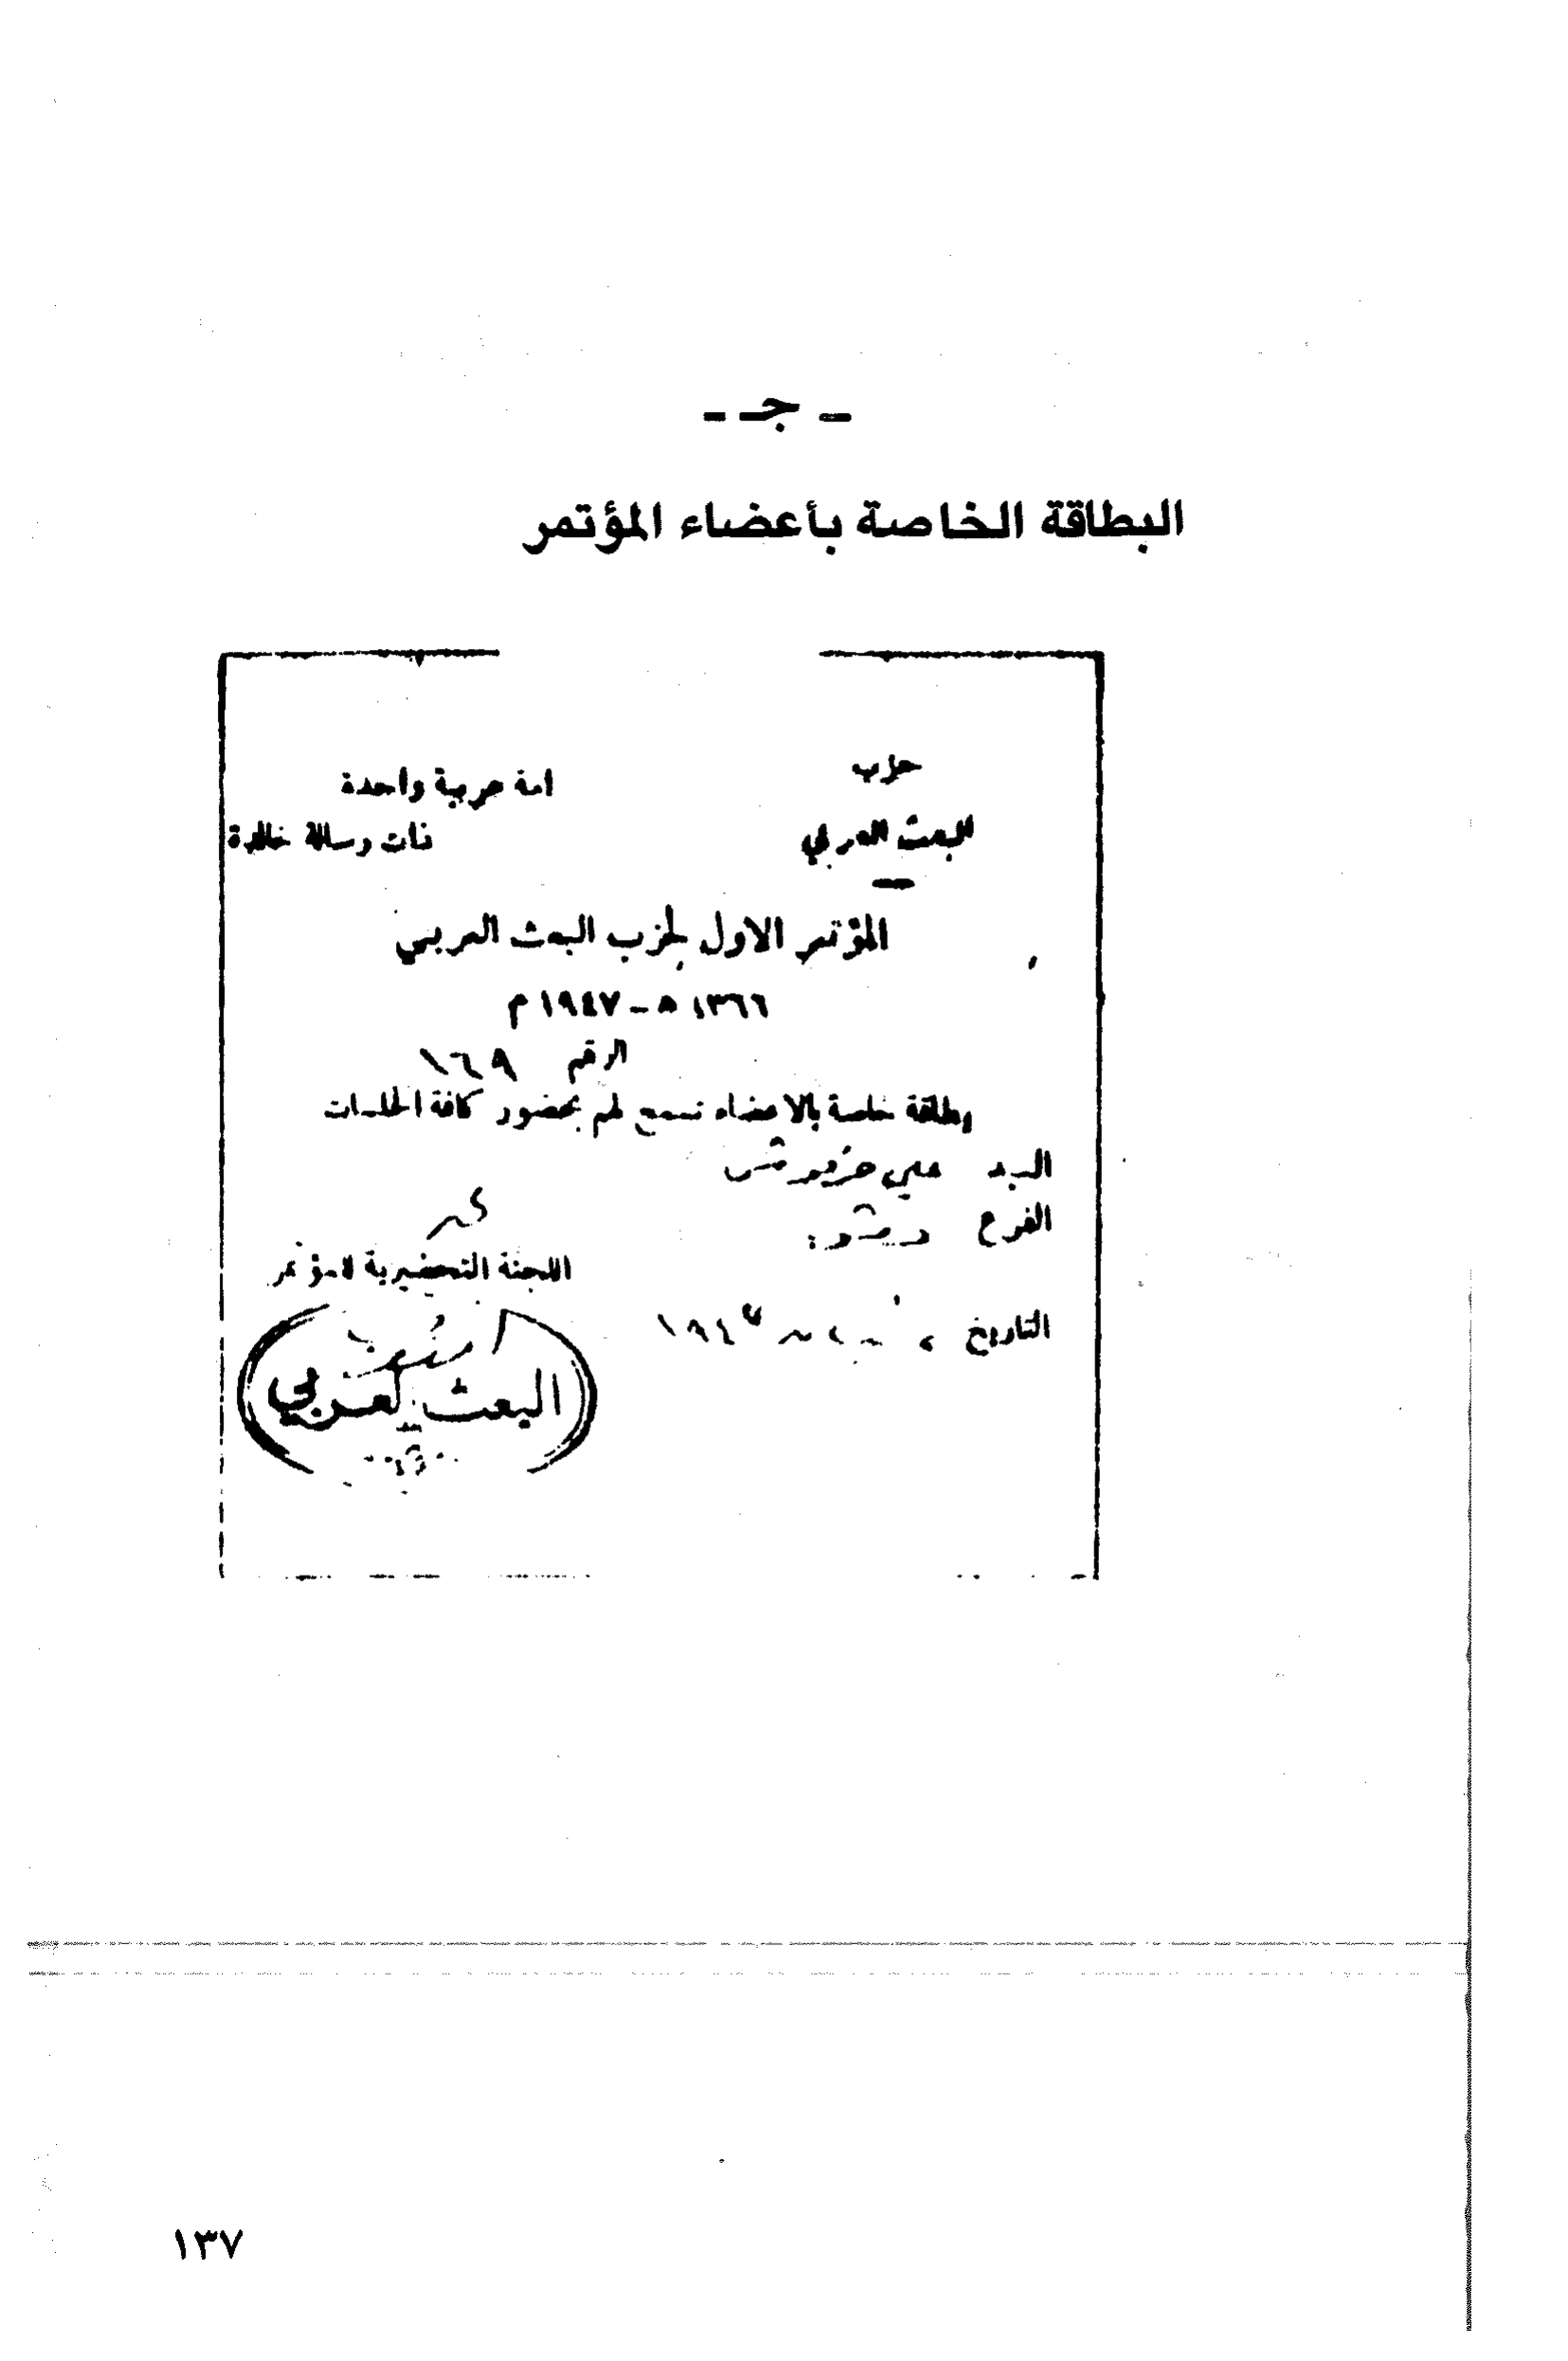 - جـ -
البطاقة الخاصة بأعضاء المؤتمر
حزب
البعث العربي
امة عربية واحدة
ذات رسالة خالدة
المؤتمر الاول لحزب البعث العربي
١٣٦٦ ه - ١٩٤٧ م
الرقم ١٦٩
بطاقة خاصة بالاعضاء تسمح لهم بحضور كافة الجلسات
السيد علي
الفرع دمشق
اللجنة التحضيرية للمؤتمر
التاريخ ١٩٤٧
البعث العربي
١٣٧